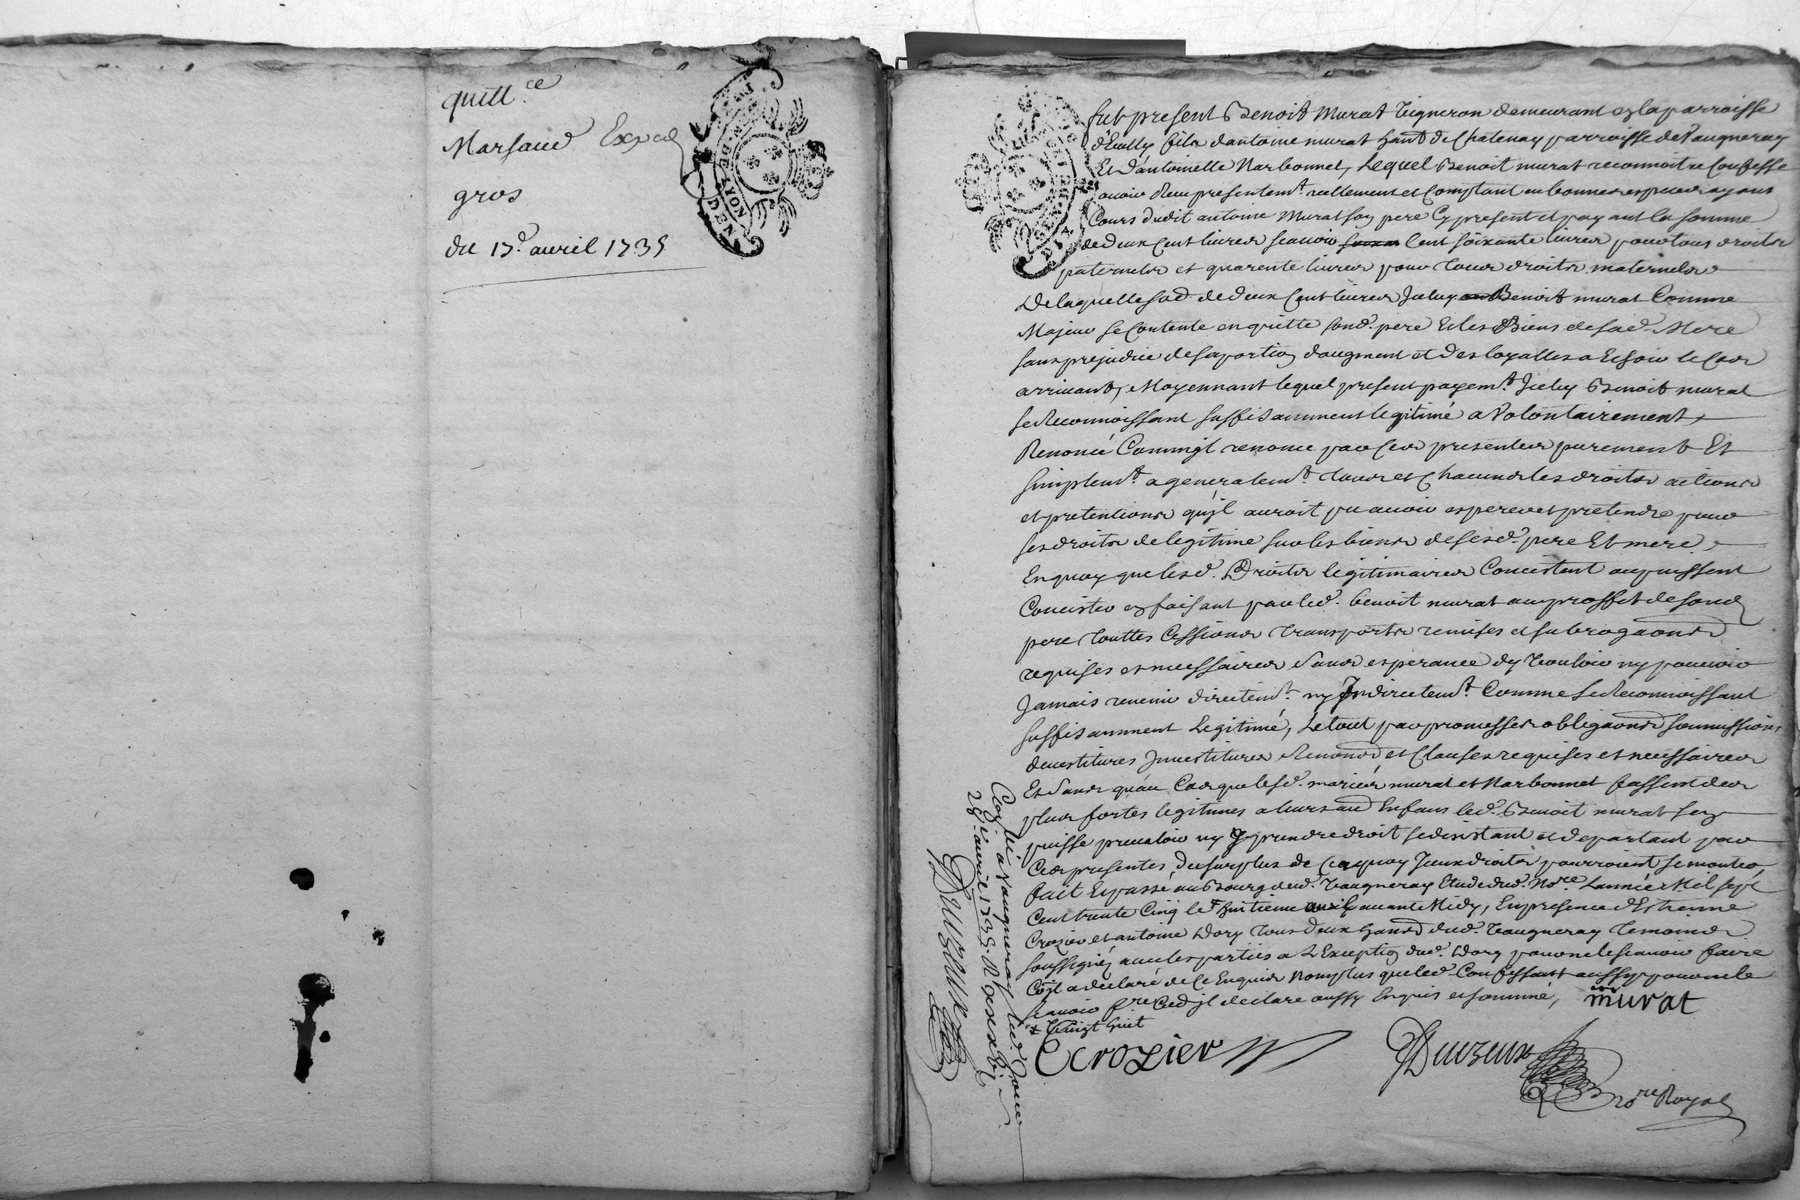 quitt.ce
Marsaud Exped
gros
du 17.e avril 1735
fut present Benoit Murat vigneron demeurant en la parroisse
d'Ecully fils d'antoine murat hant de Chatenay parroisse de Vaugneray
Et d'antoinette Narbonnet, Lequel Benoit murat reconnoit et Confesse
avoir Reeu presentemt reellement et Comptant en bonnes especes ayant
Cours dudit antoine Murat son pere Cy present et payant la somme
de deux Cent livres scavoir Cent soixante livres pour tous droits
paternels et quarente livres pour tous droits maternels
De laquelle sod de deux Cent livres Jceluy Benoit murat Comme
Majeur se Contente en quitte sond. pere Et les Biens de sad. Mere
sans prejudice de sa portion d'augment et des loyalles a Echoir le Cas
arrivant, Moyennant lequel present payemt Jceluy Benoit murat
se Reconnoissant suffisamment legitimé a Volontairement
Renoncé Commejl renonce par Ces presentes purement Et
simplemt a generalemt tous et Chacuns les droits actions
et pretentions qu'jl auroit pu avoir esperer et pretendre pour
ses droits de legitime sur les biens de sesd. pere Et mere,
En quoy que lesd. Droits legitimaires Concistent ou puissent
Concister en faisant par led. benoit murat au proffit de sond
pere touttes Cessions transports remises et subrogaons
requises et necessaires sans esperance d'y vouloir ny pouvoir
Jamais revenir directemt ny Jndirectemt Comme se Reconnoissant
suffisamment Legitimé, Le tout par promesses obligaons soumissions
devestitures Jnvestitures Renonons et Clauses requises et necessaires
Et sans qu'au Cas que lesd. mariés murat et Narbonnet fassent des
plus fortes legitimes a leurs au Enfans led. Benoit murat s'en
puisse prevaloir ny y prendre droit se desistant et departant par
Ces presentes, du surplus de Ce a quoy Jceux droits pourroient se monter
fait Et passé au Bourg dud. Vaugneray Etude dud. Nore. L'année Mil sept
Cent trente Cinq le huitieme avril avant Midy, En presence d'Estienne
Crozier et antoine Dory tous deux hans dud. Vaugneray temoins
soussignez avec les parties a L'Exception dud. Dory pour ne le scavoir faire
Cejl a declaré de Ce Enquis Nomplus que led. Confessant aussy pour ne le
scavoir fre Cejl declare aussy Enquis et sommé,
+ Vingt huit
murat
Ecrozier
Duizeux
Nore Royal
Conlé a Vaugneray led. jour
28e avril 1735. R